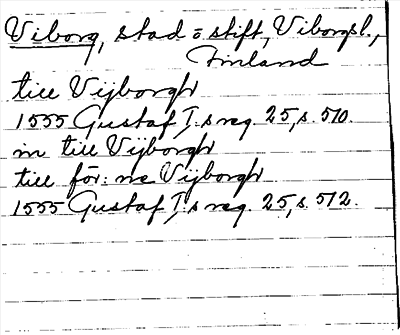 Viborg, stad o stift, Viborgsl.,
Finland
till Vijborgh
1555 Gustaf I:s reg. 25, s. 510.
in till Vijborgh
till för:ne Vijborgh
1555 Gustaf I:s reg. 25, s. 512.